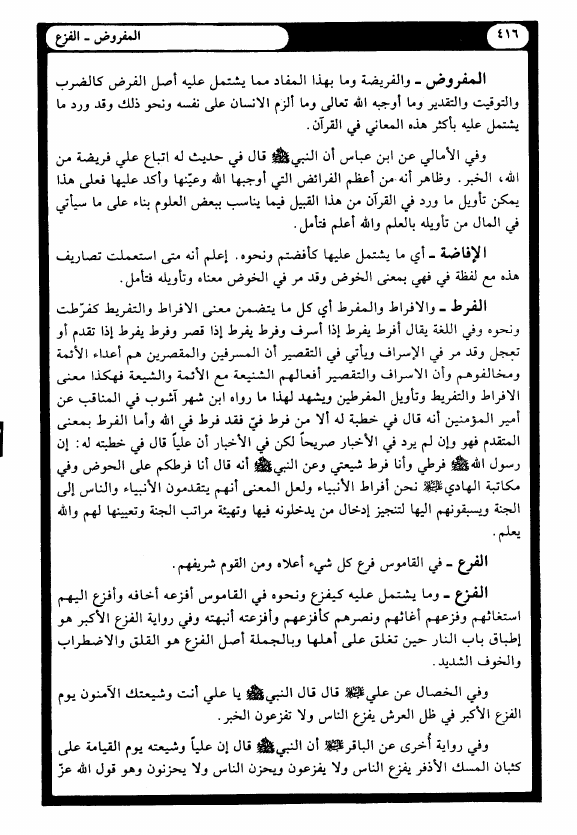 ٤١٦
المفروض - الفزع
المفروض - والفريضة وما بهذا المفاد مما يشتمل عليه أصل الفرض كالضرب
والتوقيت والتقدير وما أوجبه الله تعالى وما ألزم الانسان على نفسه ونحو ذلك وقد ورد ما
يشتمل عليه بأكثر هذه المعاني في القرآن.
وفي الأمالي عن ابن عباس أن النبي ﷺ قال في حديث له اتباع علي فريضة من
الله، الخبر. وظاهر أنه من أعظم الفرائض التي أوجبها الله وعيّنها وأكد عليها فعلى هذا
يمكن تأويل ما ورد في القرآن من هذا القبيل فيما يناسب ببعض العلوم بناء على ما سيأتي
في المال من تأويله بالعلم والله أعلم فتأمل.
الإفاضة - أي ما يشتمل عليها كأفضتم ونحوه. إعلم أنه متى استعملت تصاريف
هذه مع لفظة في فهي بمعنى الخوض وقد مر في الخوض معناه وتأويله فتأمل.
الفرط - والافراط والمفرط أي كل ما يتضمن معنى الافراط والتفريط كفرّطت
ونحوه وفي اللغة يقال أفرط يفرط إذا أسرف وفرط يفرط إذا قصر وفرط يفرط إذا تقدم أو
تعجل وقد مر في الإسراف ويأتي في التقصير أن المسرفين والمقصرين هم أعداء الأئمة
ومخالفوهم وأن الاسراف والتقصير أفعالهم الشنيعة مع الأئمة والشيعة فهكذا معنى
الافراط والتفريط وتأويل المفرطين ويشهد لهذا ما رواه ابن شهر آشوب في المناقب عن
أمير المؤمنين أنه قال في خطبة له ألا من فرط فيّ فقد فرط في الله وأما الفرط بمعنى
المتقدم فهو وإن لم يرد في الأخبار صريحاً لكن في الأخبار أن علياً قال في خطبته له: إن
رسول الله ﷺ فرطي وأنا فرط شيعتي وعن النبي ﷺ أنه قال أنا فرطكم على الحوض وفي
مكاتبة الهادي نحن أفراط الأنبياء ولعل المعنى أنهم يتقدمون الأنبياء والناس إلى
الجنة ويسبقونهم اليها لتنجيز إدخال من يدخلونه فيها وتهيئة مراتب الجنة وتعيينها لهم والله
يعلم.
الفرع - في القاموس فرع كل شيء أعلاه ومن القوم شريفهم.
الفزع - وما يشتمل عليه كيفزع ونحوه في القاموس أفزعه أخافه وأفزع اليهم
استغاثهم وفزعهم أغاثهم ونصرهم كأفزعهم وأفزعته أنبهته وفي رواية الفزع الأكبر هو
إطباق باب النار حين تغلق على أهلها وبالجملة أصل الفزع هو القلق والاضطراب
والخوف الشديد.
وفي الخصال عن علي قال قال النبي ﷺ يا علي أنت وشيعتك الآمنون يوم
الفزع الأكبر في ظل العرش يفزع الناس ولا تفزعون الخبر.
وفي رواية أُخرى عن الباقر أن النبي ﷺ قال إن علياً وشيعته يوم القيامة على
كثبان المسك الأذفر يفزع الناس ولا يفزعون ويحزن الناس ولا يحزنون وهو قول الله عزّ